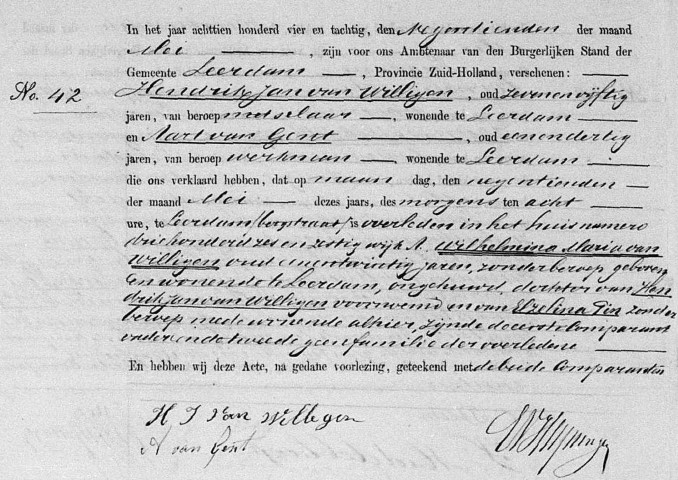 In het jaar achttien honderd vier en tachtig, den Negentienden der maand
Mei, zijn voor ons Ambtenaar van den Burgerlijken Stand der
Gemeente Leerdam, Provincie Zuid-Holland, verschenen:
No. 42
Hendrik Jan van Willigen, oud zevenenvijftig
jaren, van beroep metselaar, wonende te Leerdam
en Aart van Gent, oud eenendertig
jaren, van beroep werkman, wonende te Leerdam
die ons verklaard hebben, dat op maandag, den negentienden
der maand Mei dezes jaars, des morgens ten acht
ure, te Leerdam (borgstraat) is overleden in het huis numero
driehonderd zes en zestig wijk A. Wilhelmina Maria van
Willigen oud eenentwintig jaren, zonder beroep geboren
en wonende te Leerdam, ongehuwd, dochter van Hen
drik Jan van Willigen voornoemd en van zonder
beroep mede wonende alhier, zijnde de eerste Comparant
vader en de tweede geen familie der overledene
En hebben wij deze Acte, na gedane voorlezing, geteekend met de beide Comparanten
H J van Willegen
A van Gent